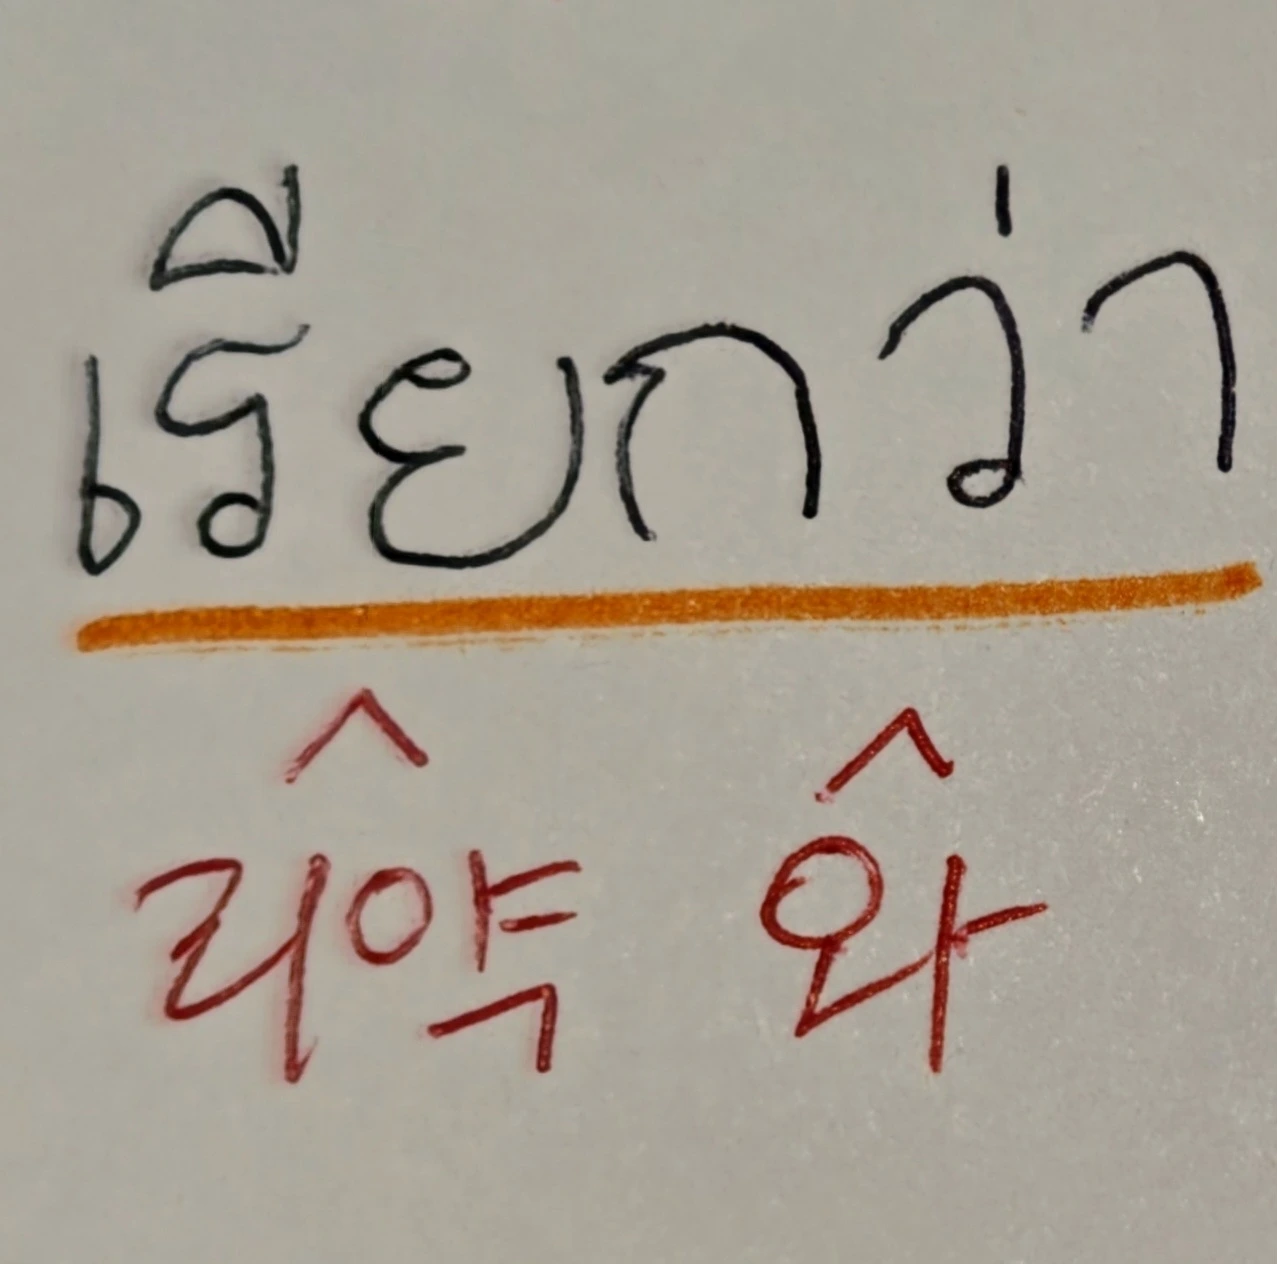 เรียกว่า
^ ^
리약 와